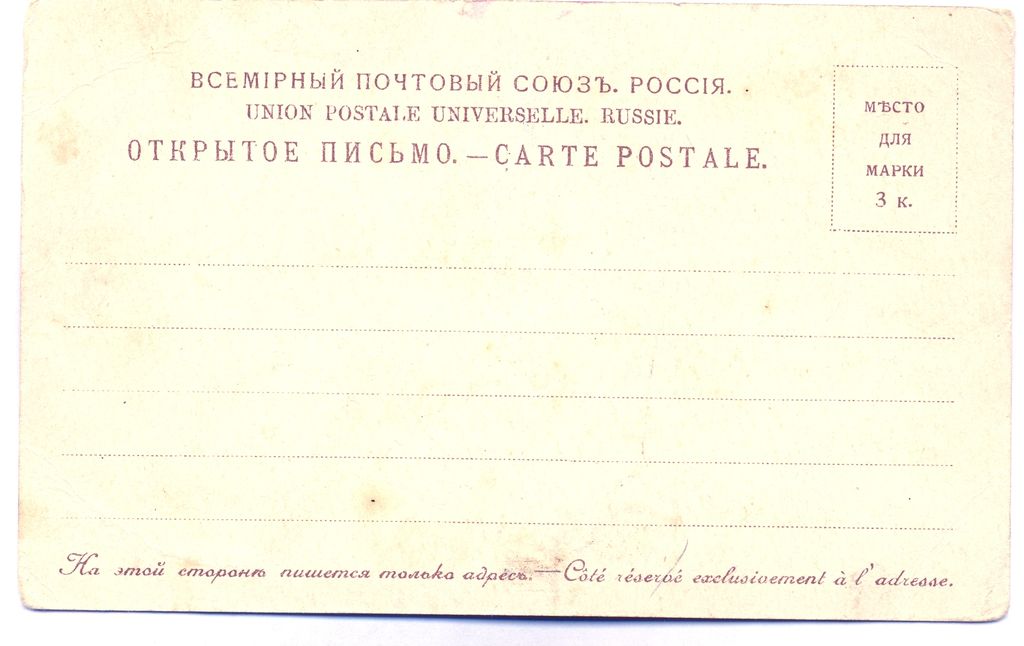 ВСЕМІРНЫЙ ПОЧТОВЫЙ СОЮЗЪ. РОССІЯ.
UNION POSTALE UNIVERSELLE. RUSSIE.
ОТКРЫТОЕ ПИСЬМО. — CARTE POSTALE.
МѢСТО
ДЛЯ
МАРКИ
3 к.
На этой сторонѣ пишется только адресъ. — Côté réservé exclusivement à l' adresse.